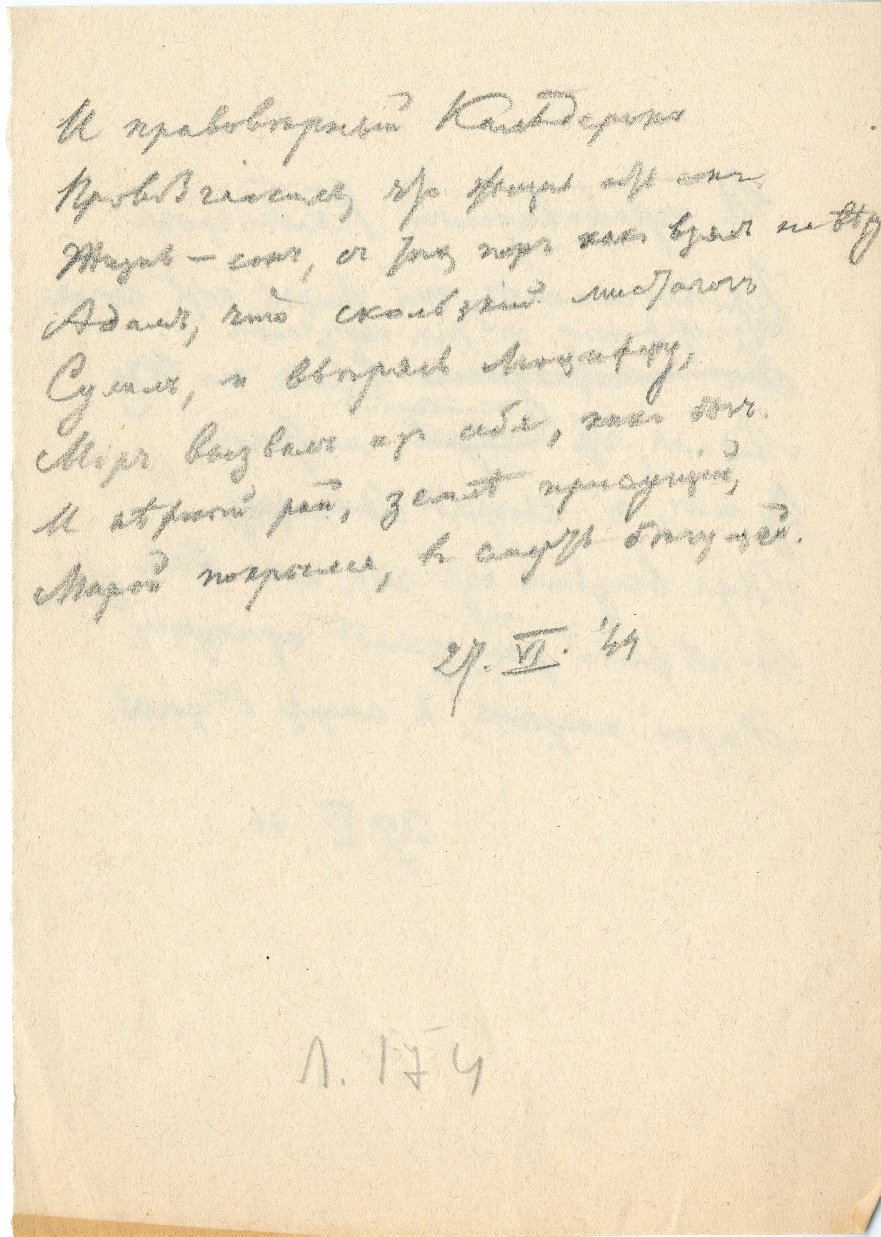 И правовѣрный Кальдеронъ
Провозгласилъ, что жизнь есть сонъ.
Жизнь – сонъ, съ тѣхъ поръ какъ взялъ на вѣру
Адамъ, что скользкій мистагогъ
Сулилъ, и ввѣрясь Люциферу,
Міръ вызвалъ изъ себя, какъ богъ.
И вѣрный рай, землѣ присущій,
Марой покрылся, въ смерть бѣгущей.
27. VI. '44
Л. 174